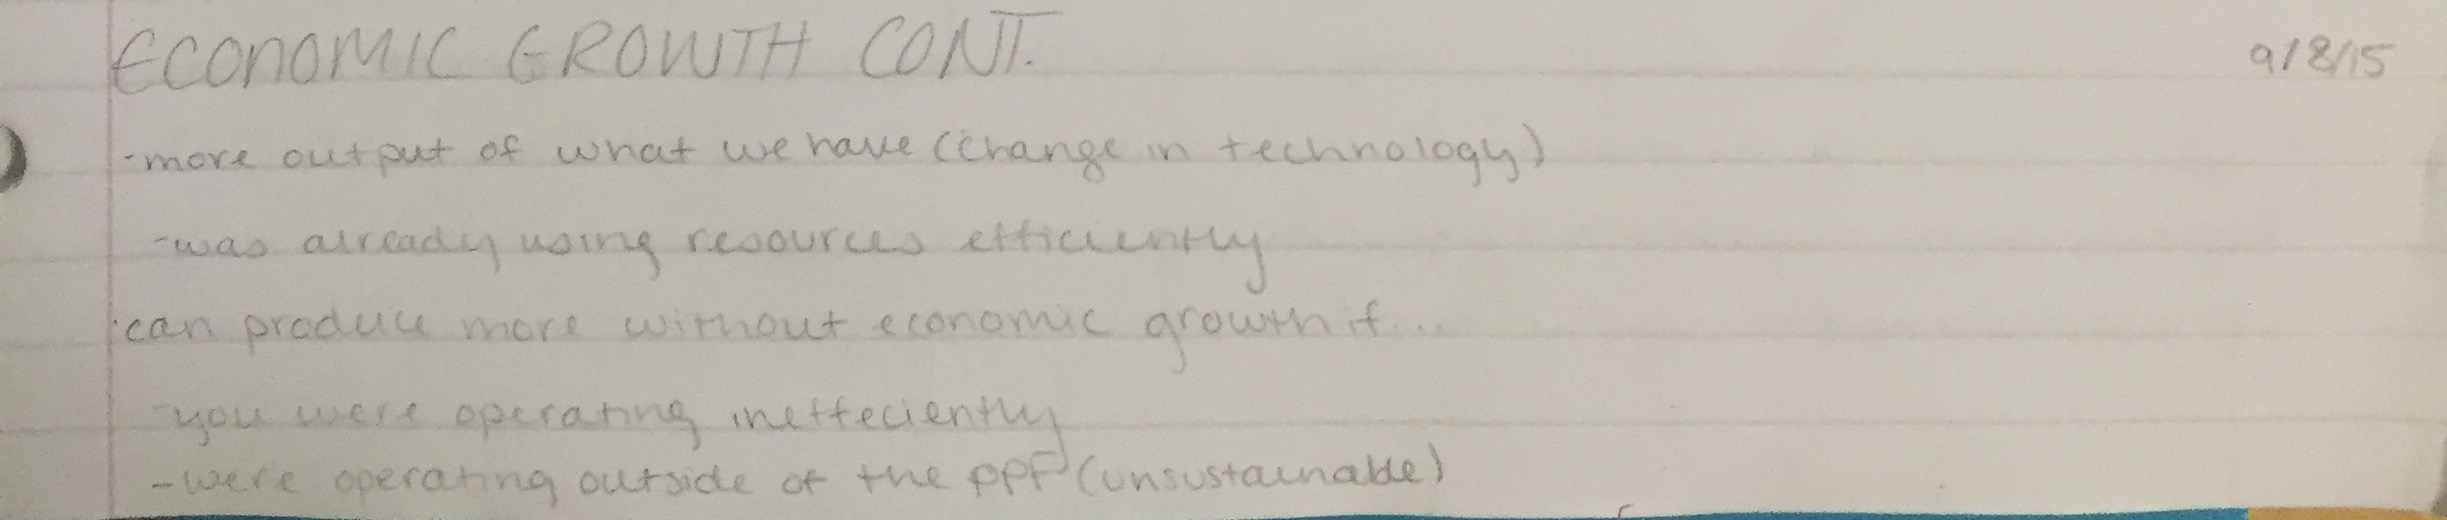 ECONOMIC GROWTH CONT. 9/8/15
-more output of what we have (change in technology)
-was already using resources efficiently
·can produce more without economic growth if...
-you were operating ineffeciently
-were operating outside of the PPF (unsustainable)